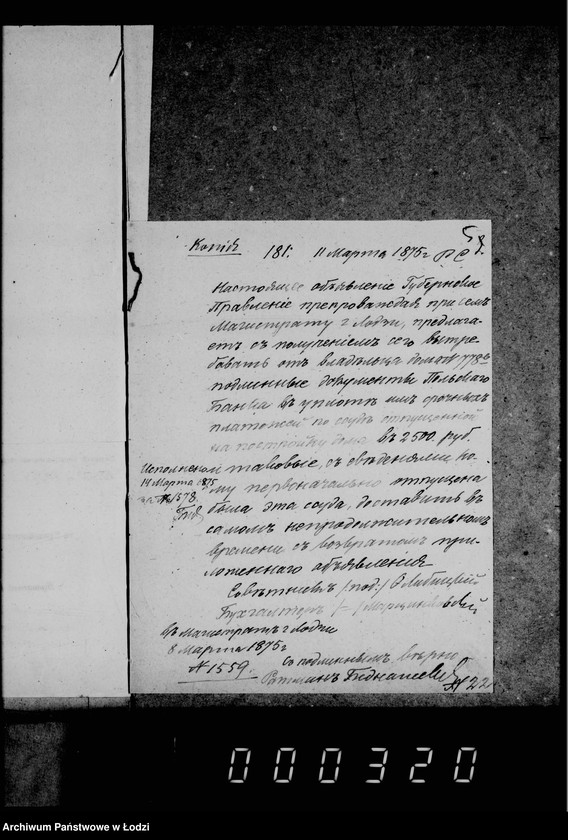 Копія 181. 11 Марта 1875 г.
Настоящее объявленіе Губернское
Правленіе препровождая при семъ
Магистрату г. Лодзи, предлага-
етъ съ полученіемъ сего вытре-
бовать отъ владѣльца дома № 778
подлинные документы Польскаго
Банка въ уплатѣ имъ срочныхъ
платежей по ссудѣ отпущенной
на постройку дома въ 2500 руб.
таковые, съ свѣденіями ко-
му первоначально отпущена
была эта ссуда, доставить въ
самомъ непродолжительномъ
времени съ возвратомъ при-
ложеннаго объявленія
14 Марта 1875
за № 1378.
Совѣтникъ (под.)
Бухгалтеръ (-)
Въ Магистратѣ г. Лодзи
8 Марта 1875 г
№ 1559.
Съ подлиннымъ вѣрно
Ратманъ
22
000320
Archiwum Państwowe w Łodzi